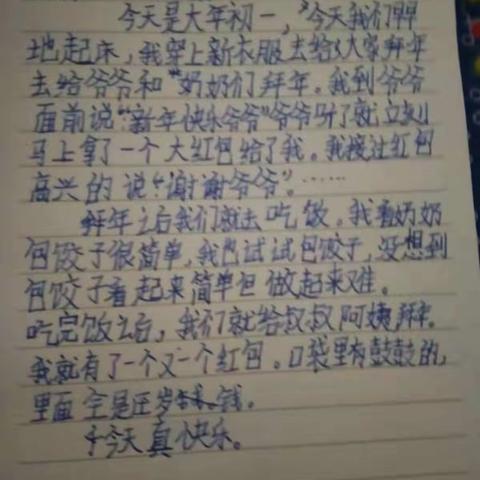 今天是大年初一，今天我们早早
地起床，我穿上新衣服去给大家拜年
去给爷爷和奶奶们拜年。我到爷爷
面前说“新年快乐爷爷”爷爷听了就立刻
马上拿了一个大红包给了我。我接过红包
高兴的说“谢谢爷爷”。……
拜年之后我们就去吃饭。我看奶奶
包饺子很简单，我也试试包饺子，没想到
包饺子看起来简单但做起来难。
吃完饭之后，我们就给叔叔阿姨拜年。
我就有了一个又一个红包。口袋里有鼓鼓的，
里面全是压岁钱。
今天真快乐。